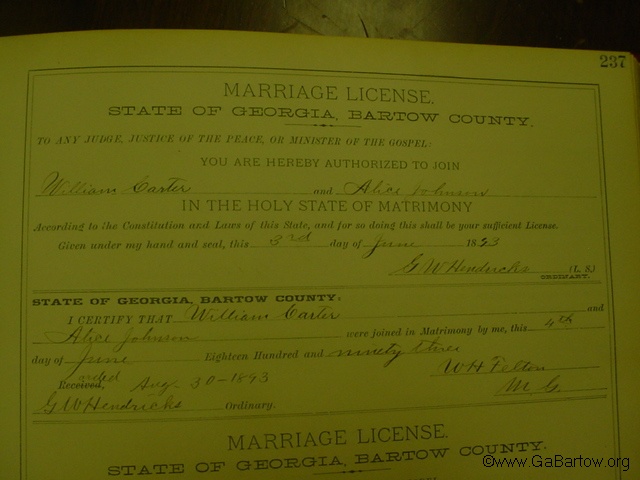 237
MARRIAGE LICENSE.
STATE OF GEORGIA, BARTOW COUNTY.
TO ANY JUDGE, JUSTICE OF THE PEACE, OR MINISTER OF THE GOSPEL:
YOU ARE HEREBY AUTHORIZED TO JOIN
William Carter and Alice Johnson
IN THE HOLY STATE OF MATRIMONY
According to the Constitution and Laws of this State, and for so doing this shall be your sufficient License.
Given under my hand and seal, this 3rd day of June 1893
G W Hendricks (L. S.)
ORDINARY.
STATE OF GEORGIA, BARTOW COUNTY.
I CERTIFY THAT William Carter and
Alice Johnson were joined in Matrimony by me, this 4th
day of June Eighteen Hundred and ninety three
W H Felton
Received, Aug 30-1893
M. G.
G W Hendricks Ordinary.
MARRIAGE LICENSE.
STATE OF GEORGIA, BARTOW COUNTY.
©www.GaBartow.org